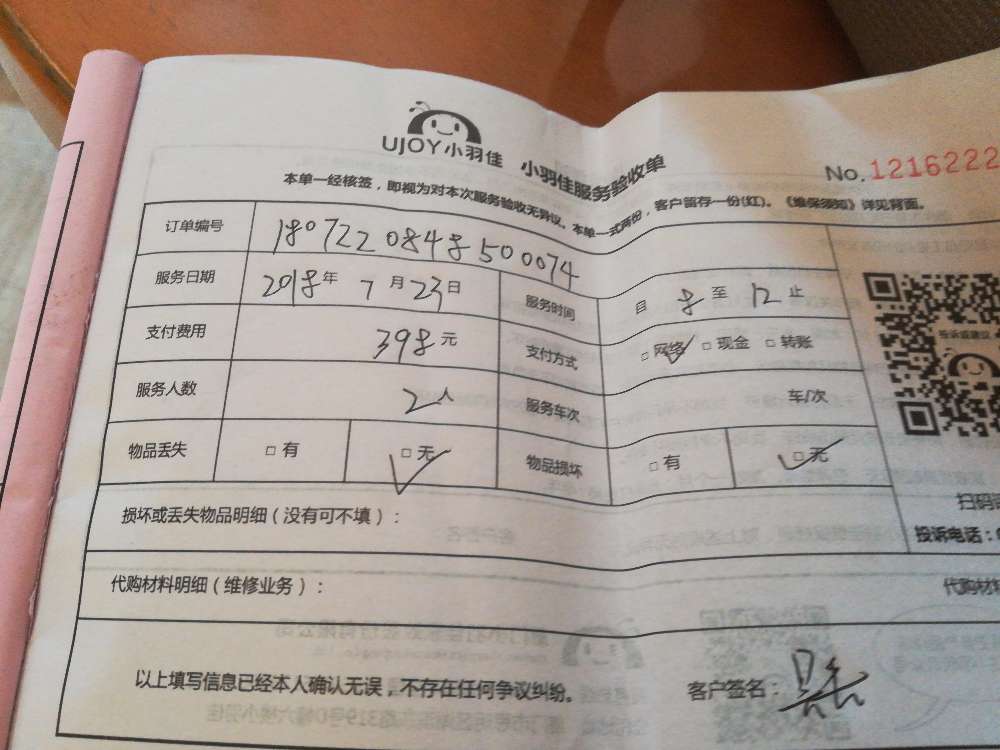 UJOY小羽佳 小羽佳服务验收单
No.1216222
本单一经核签，即视为对本次服务验收无异议。本单一式两份，客户留存一份(红)。《维保须知》详见背面。
订单编号 180722084850074
服务日期 2018年 7月23日 服务时间 自 8 至 12 止
支付费用 398元 支付方式 □网络 □现金 □转账
服务人数 2人 服务车次 车/次
物品丢失 □有 □无 物品损坏 □有 □无
投诉或建议
扫码
投诉电话：
损坏或丢失物品明细（没有可不填）：
代购材料明细（维修业务）： 代购材料
以上填写信息已经本人确认无误，不存在任何争议纠纷。 客户签名：